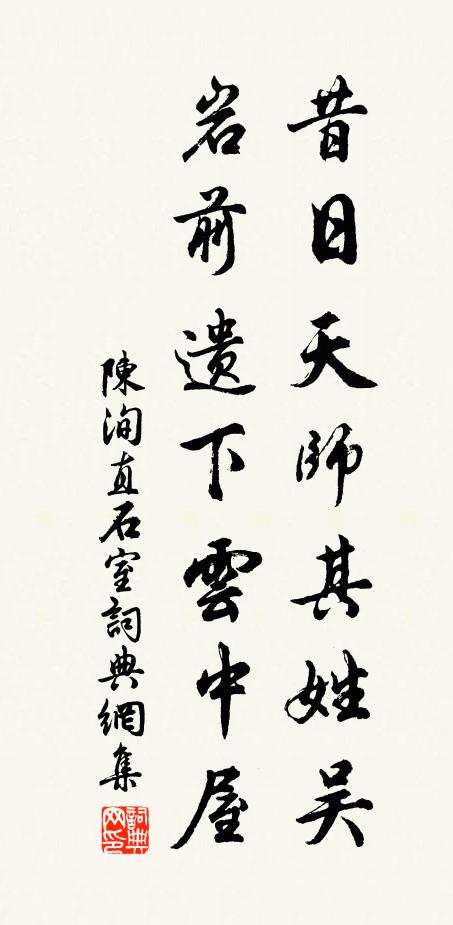 昔日天師其姓吴
岩前遺下雲中屋
陳洵直石室詞典網集
詞典网印